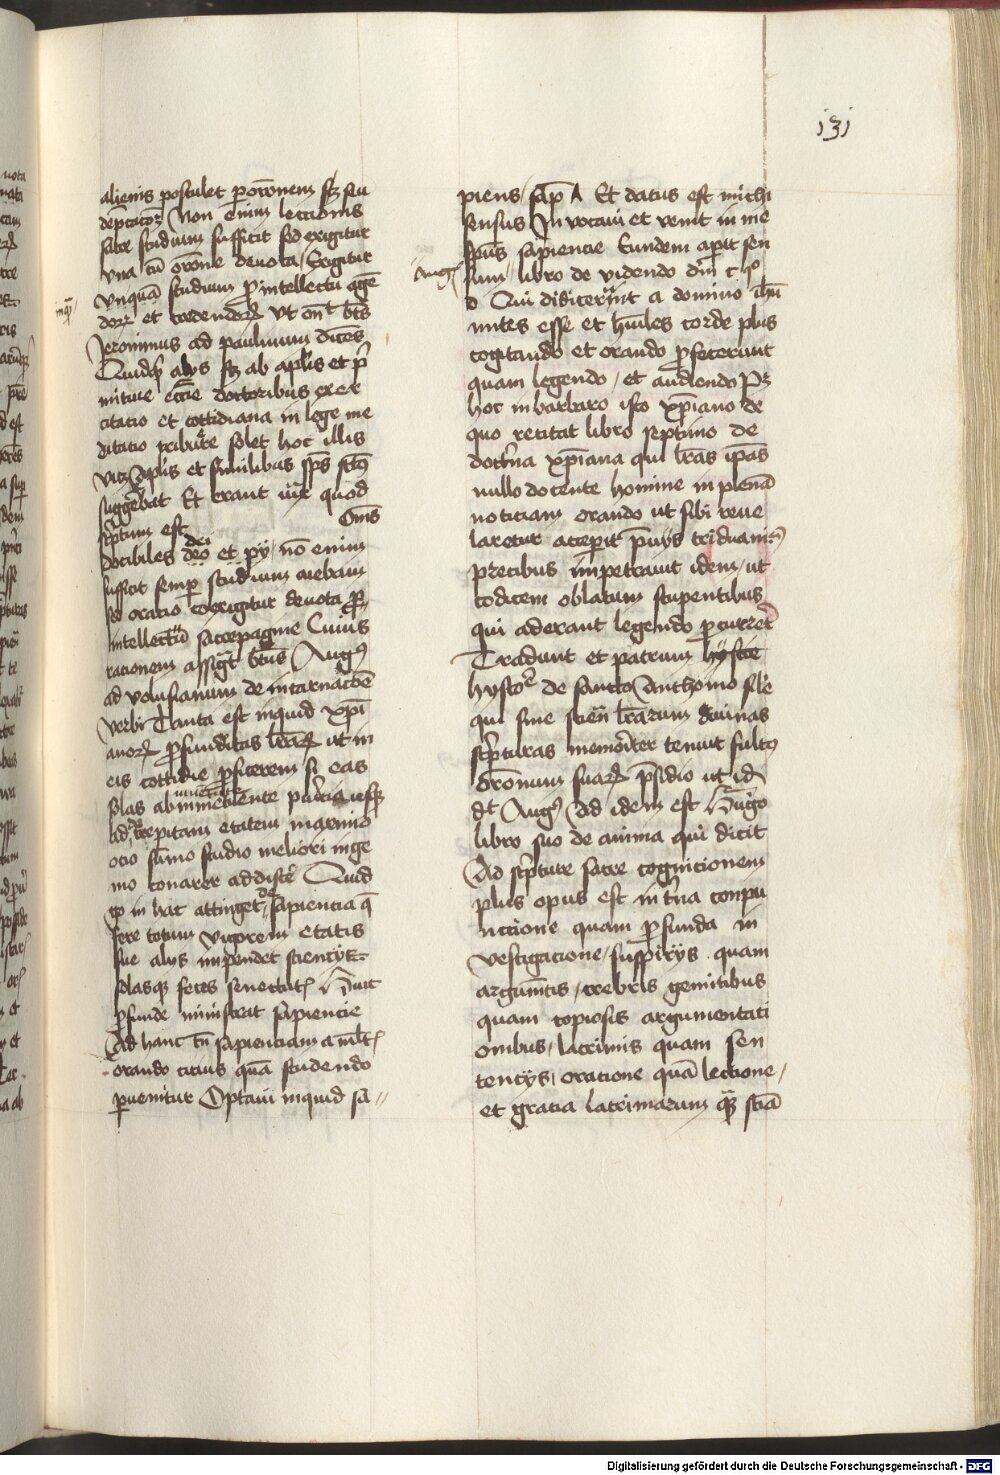 131
alienis postulet p oronem sz seu
dep̄catōꝫ Non enim lectionis
sacre studium sufficit sed exigitur
vna cū orone deuota Exigitur
vnquā studium ꝓ intellectu age
et credendoꝝ vt btus
Jeronimus ad paulinum dices
alijs sz ab aplis et pͥ
mitiue eccie doctoribus exer
citatio et cottidiana in lege me
ditatio tribuere solet hoc illis
aplis et similibus sps sctus
suggerebat Et erant quod
scptum est Oms
docibiles deo dei et py no enim
sufficit semp studium aiebam
sed oratio coexigitur deuota ꝓ
intellectu sacre pagine Cuius
rationem assigt btus Augꝰ
ad volusianum de incarnacoe
verbi Tanta est inquid xpi
anoꝝ ꝓfunditas lraꝝ ut in
eis cottidie ꝓficerem si eas
solas ab ineunte puericia usqꝫ
ad decrepitam etatem maximo
ocio sumo studio meliori inge
nio conarer addiscere Quid
in hac attinget de sapiencia q
fere totum vigorem etatis
sue alijs impendet scientijs
solasqꝫ feces senectutis Huic
ꝓfunde ministrat sapiencie
Ad hanc tn sapienciam a mlt
orando citius quā studendo
puenitur Optaui inquid sa
piens sap Et datus est michi
sensus Inuocaui et venit in me
spus sapiencie Eundem aperit sen
Augꝰ
sum libro de videndo dm c
Qui didicerunt a domino ihu
mites esse et huiles corde plus
cogitando et orando ꝓfecerunt
quam legendo et audiendo Pꝫ
hoc in barbaro isto xpiano de
quo recitat libro septimo de
doctna xpiana qui lras ipas
nullo docente homine in plenā
noticiam orando ut sibi reue
laretur accepit pmijs triduanis
precibus impetrauit idem ut
codicem oblatum stupentibus
qui aderant legendo pcurreret
Tradunt et patrum hystorie
hystor de sancto Anthonio sile
qui sine scien lrarum diuinas
scpturas memoriter tenuit fultꝰ
oronum suaꝝ psidio ut id
dt Augꝰ Ad idem est Hugo
libro suo de anima qui dicit
Ad scpture sacre cognicionem
plus opus est interna conpu
nctione quam ꝓfunda in
vestigacione suspirijs quam
argumtis crebris gemitibus
quam copiosis argumentati
onibus lacrimis quam sen
tencijs oratione quā lectione
et gratia lacrimarum qꝫ sciā
Digitalisierung gefördert durch die Deutsche Forschungsgemeinschaft - DFG